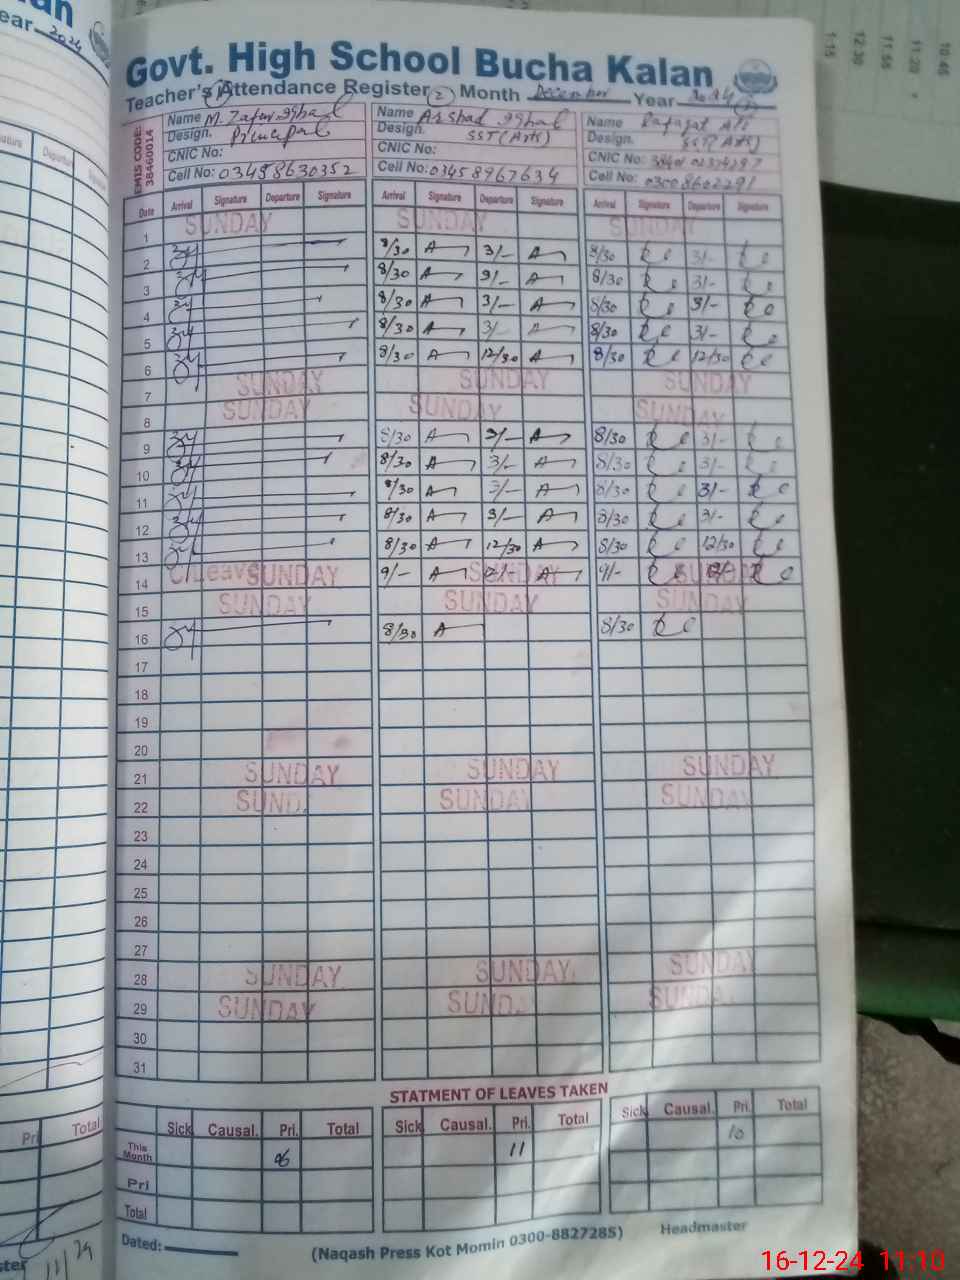 Year 2024
10:45
11:20
11:55
12:30
1:15
Govt. High School Bucha Kalan
Teacher's Attendance Register Month December Year 2024
1 2 3
EMIS CODE: 38460014
Name M. Zafar Iqbal Name Arshad Iqbal Name Rafaqat Ali
Design. Principal Design. SST (Arts) Design. SST (Arts)
CNIC No: CNIC No: CNIC No:
Cell No: 03458630352 Cell No: 03458967634 Cell No: 03008602291
Date Arrival Signature Departure Signature Arrival Signature Departure Signature Arrival Signature Departure Signature
1 SUNDAY SUNDAY SUNDAY
2 8/30 A 3/- A 8/30 3/-
3 8/30 A 3/- A 8/30 3/-
4 8/30 A 3/- A 8/30 3/-
5 8/30 A 3/- A 8/30 3/-
6 8/30 A 12/30 A 8/30 12/30
7 SUNDAY SUNDAY SUNDAY
8 SUNDAY SUNDAY SUNDAY
9 8/30 A 3/- A 8/30 3/-
10 8/30 A 3/- A 8/30 3/-
11 8/30 A 3/- A 8/30 3/-
12 8/30 A 3/- A 8/30 3/-
13 8/30 A 12/30 A 8/30 12/30
14 C/Leave SUNDAY 9/- A SUNDAY A 9/- SUNDAY
15 SUNDAY SUNDAY SUNDAY
16 8/30 A 8/30
17
18
19
20
21 SUNDAY SUNDAY SUNDAY
22 SUND. SUNDAY SUNDAY
23
24
25
26
27
28 SUNDAY SUNDAY SUNDAY
29 SUNDAY SUNDA SUNDA
30
31
STATMENT OF LEAVES TAKEN
Sick Causal. Pri. Total Sick Causal. Pri. Total Sick Causal. Pri. Total
This Month 06 11 10
Pri
Total
Dated: (Naqash Press Kot Momin 0300-8827285) Headmaster
Pri Total
16-12-24 11:10